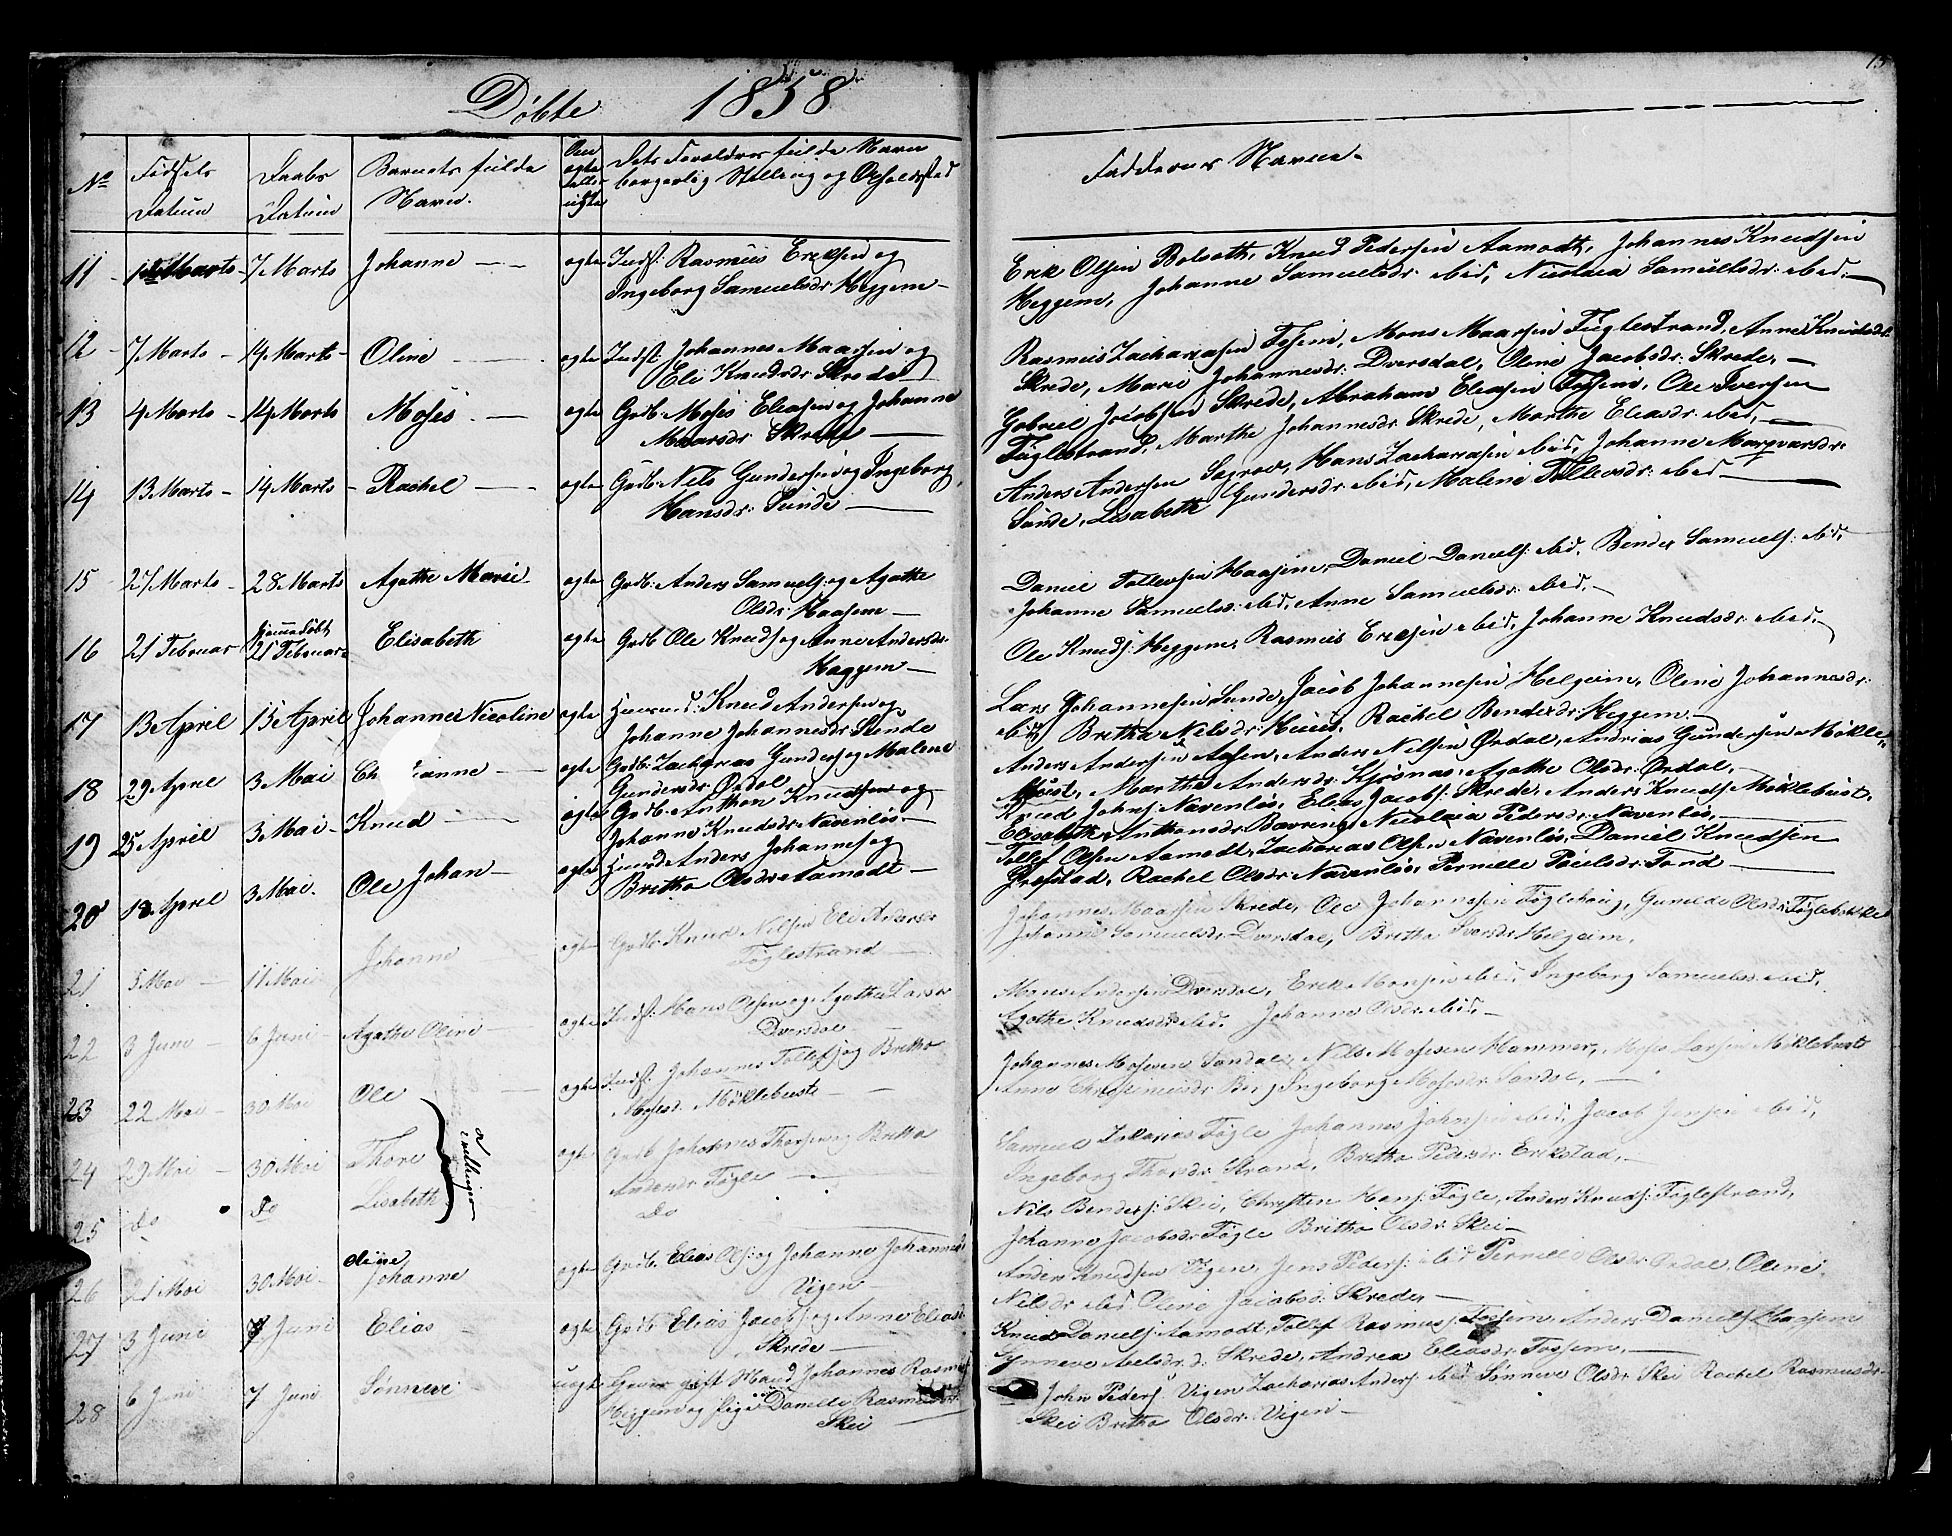 15
Döbte 1858
No
Födsels
Datum
Daabs
Datum
Barnets fulde
Navn.
Om
ægte
eller
uægte
Dets Forældres fulde Navn
borgerlig Stilling og Opholdssted
Faddernes Navne.
11 - Marts - 7 Marts Johanne - ægte Indst: Rasmus Eriksen og
Ingeborg Samuelsdr: Heggem -
Erik Olsen Bolsæth, Knud Pedersen Aamodt, Johannes Knudsen
Heggem, Johanne Samuelsdr: ibid, Nicolaia Samuelsdr: ibid. -
12 - 7 Marts - 14 Marts - Oline - ægte Indst: Johannes Maarsen og
Eli Knudsdr: Skrede -
Rasmus Zachariasen Fossem, Mons Maarsen Föglestrand, Anne Knudsdr:
Skrede, Marie Johannesdr: Dversdal, Oline Jacobsdr: Skrede, -
13 4 Marts - 14 Marts Moses - ægte Grdb: Moses Eliasen og Johanne
Maarsdr: Skrede -
Gabriel Jacobsen Skrede, Abraham Eliasen Fossem, Ole Iversen
Föglestrand, Marthe Johannesdr: Skrede, Marthe Eliasdr: ibid, -
14 13 Marts - 14 Marts - Rachel - ægte Grdb: Nils Gundersen og Ingeborg
Hansdr: Sunde -
Anders Andersen Sogrov, Hans Zachariasen ibid, Johanne Margvarsdr:
Sunde, Lisabeth Gundersdr: ibid, Malene Tollevsdr: ibid -
15 27 Marts - 28 Marts Agathe Marie ægte Grdb: Anders Samuels: og Agathe
Olsdr: Haasem -
Daniel Tollevsen Haasem, Daniel Daniels: ibid, Bendix Samuels: ibid,
Johanne Samuelsdr: ibid, Anne Samuelsdr: ibid. -
16 21 Februar hjemmedöbt
21 Februar Elisabeth ægte Grdb Ole Knuds: og Anne Andersdr:
Heggem -
Ole Knuds: Heggem, Rasmus Eriksen ibid, Johanne Knudsdr: ibid. -
17 13 April 15 April Johanne Nicoline ægte Huusmd: Knud Andersen og
Johanne Johannesdr: Sunde
Lars Johannesen Sunde, Jacob Johannesen Helgeim, Oline Johannesdr:
ibid, Brethe Nilsdr: Huus, Rachel Bendixdr: Heggem. -
18 29 April 3 Mai Ch ianne - ægte Grdb: Zacharias Gunders: og Malene
Gundersdr: Ördal
Anders Andersen Aasen, Anders Nilsen Ördal, Andrias Gundersen Mökle-
bust, Marthe Andersdr: Kjösnæs, Agathe Olsdr: Ördal. -
19 25 April 3 Mai - Knud - ægte Grdb: Anthon Knudsen og
Johanne Knudsdr: Navenlös. -
Knud Johns: Navenlös, Elias Jacobs: Skrede, Anders Knuds: Möklebust,
Elisabeth Anthonsdr: Bævreng, Nicolaia Pedersdr: Navenlös, -
20 18 April 3 Mai. Ole Johan - ægte Huusmd Anders Johannes: og
Brithe Olsdr: Aamodt -
Tollef Olsen Aamodt, Zacharias Olsen Navenlös, Daniel Knudsen
Grefstad, Rachel Olsdr: Navenlös, Pernille Paulsdr: Tond -
21 5 Mai - 11 Mai Johanne ægte Grdb: Knud Nilsen Eli Andersdr
Föglestrand -
Johannes Maarsen Skrede, Ole Johannesen Föglehaug, Gunilde Olsdr:
Johanne Samuelsdr: Dversdal, Britha Iversdr: Helgeim.
22 3 Juni - 6 Juni - Agathe Oline - ægte Indst: Hans Olsen og Agathe Larsdr
Dversdal -
Mons Andersen Dversdal, Erik Monsen ibid, Ingeborg Samuelsdr: ibid,
Agathe Knudsdr: ibid. Johanne Olsdr: ibid, -
23 22 Mai - 30 Mai Ole ægte Indst: Johannes Tollefs: og Brethe
Mosesd: Möklebuste -
Johannes Mosesen Sandal, Nils Mosesen Hammer, Moses Larsen Möklebuste
Anne Ingeborg Mosesdr: Sandal, -
24 29 Mai - 30 Mai Thore
Tvillinger
ægte Grdb Johannes Thorsen og Britha
Andersdr: Fögle -
Samuel Zakarias Fögle Johannes Johnsen ibid, Jacob Jensen ibid,
Ingeborg Thorsdr: Strand, Britha Pedersdr: Erikstad, -
25 do do Lisabeth do
Nils Benders: Skei, Christen Hans: Fögle, Anders Knuds: Föglestrand,
Johanne Jacobsdr: Fögle Britha Olsdr: Skei -
26 21 Mai 30 Mai - Oline
Johanne ægte Grdb. Elias Ols: og Johanne Johannesd
Vigen -
Anders Knudsen Vigen, Jens Peders: ibid Pernille Olsdr: Ördal, Oline
Nilsdr ibid Oline Jacobsd: Skrede, -
27 3 Juni 7 Juni Elias ægte Grdb Elias Jacobs: og Anne Eliasd
Skrede -
Knud Daniels: Aamodt, Tollef Rasmus: Fossem, Anders Daniels: Haasem
Synneve Abelsdr: Skrede, Andrea Eliasdr: Fossem, -
28 6 Juni 7 Juni Sönneve uægte gift Mand Johannes Rasmus
Heggem og pige Danielle Rasmusdr:
Skei
John Peders: Vigen Zacharias Anders: ibid Sönneve Olsdr Skei Rachel Rasmusdr:
Skei Britha Olsdr: Vigen -